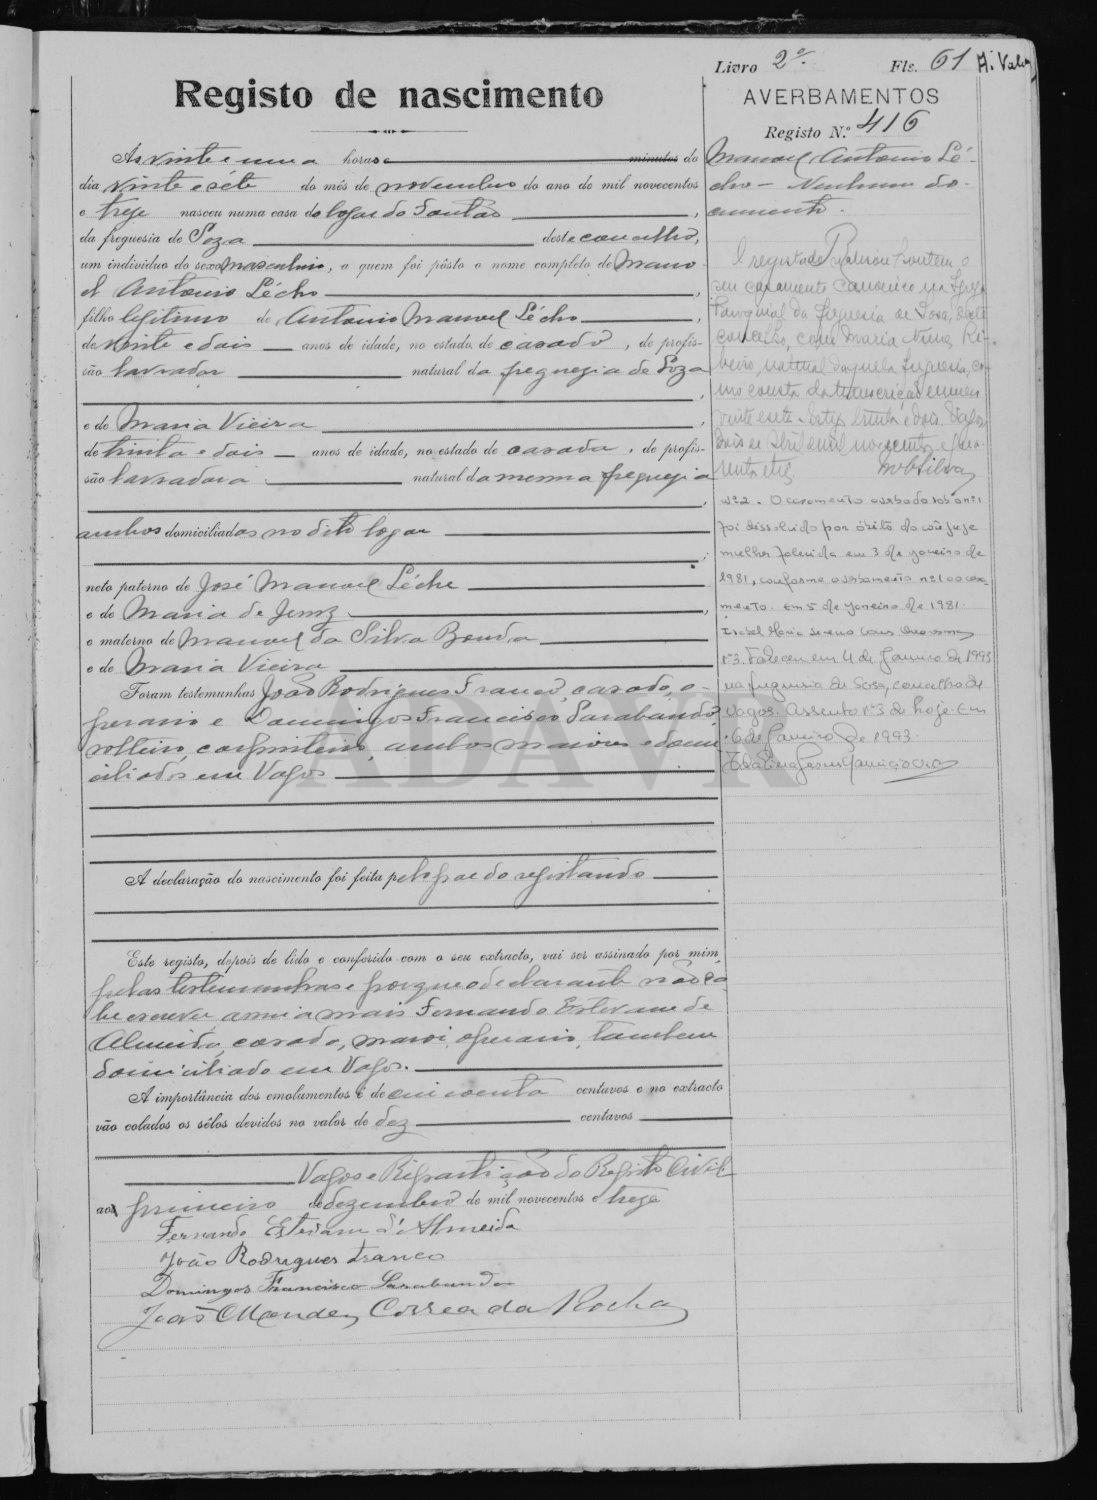 Livro 2º Fls. 61 A. Valor
Registo de nascimento
Às vinte e uma horas e minutos do
dia vinte e séte do mês de novembro do ano de mil novecentos
e treze nasceu numa casa do logar do Fontão,
da freguesia de Soza deste concelho,
um individuo do sexo masculino, a quem foi pôsto o nome completo de Mano-
el Antonio Lécho,
filho legitimo de Antonio Manoel Lécho,
de vinte e dois anos de idade, no estado de casado, de profis-
são lavrador natural da freguezia de Soza
,
e de Maria Vieira,
de trinta e dois anos de idade, no estado de casada, de profis-
são lavradora natural da mesma freguezia
,
ambos domiciliados no dito logar
;
neto paterno de José Manoel Léche
e de Maria de Jesus,
e materno de Manoel da Silva Bouda
e de Maria Vieira
Foram testemunhas João Rodrigues Franco, casado, o-
perario e Domingos Francisco Sarabando,
solteiro, carpinteiro, ambos maiores e domi-
ciliados em Vagos
A declaração do nascimento foi feita pelo pae do registando
Este registo, depois de lido e conferido com o seu extracto, vai ser assinado por mim,
pelas testemunhas e porque o declarante não sa-
be escrever assina mais Fernando Estevam de
Almeida, casado, maior, operario, tambem
domiciliado em Vagos.
A importância dos emolumentos é de cincoenta centavos e no extracto
vão colados os sêlos devidos no valor de dez centavos
Vagos e Repartição do Registo Civil
aos primeiro de dezembro de mil novecentos e treze
Fernando Estevam d'Almeida
João Rodrigues Franco
Domingos Francisco Sarabando
João Mendes Correa da Rocha
AVERBAMENTOS
Registo N.º 416
Manoel Antonio Lé-
cho – Nenhum do-
cumento.
O registado celebrou hontem o
seu casamento canonico na Igreja
Paroquial da freguesia de Sosa, deste
concelho, com Maria Nunes Ri-
beiro, natural daquela freguesia, co-
mo consta da transcrição numero
vinte e sete. Vagos,
dois de Abril de mil novecentos e qua-
renta e tres. Silva
Nº 2. O casamento averbado sob o nº 1
foi dissolvido por óbito do cônjuge
mulher falecida em 3 de Janeiro de
1981, conforme averbamento nº 1 ao casa-
mento. em 5 de Janeiro de 1981.
Isabel Maria
Nº 3. Faleceu em 4 de Janeiro de 1993
na freguesia de Sosa, concelho de
Vagos. Assento nº 3 de hoje. Em
6 de Janeiro de 1993.
ADAVR